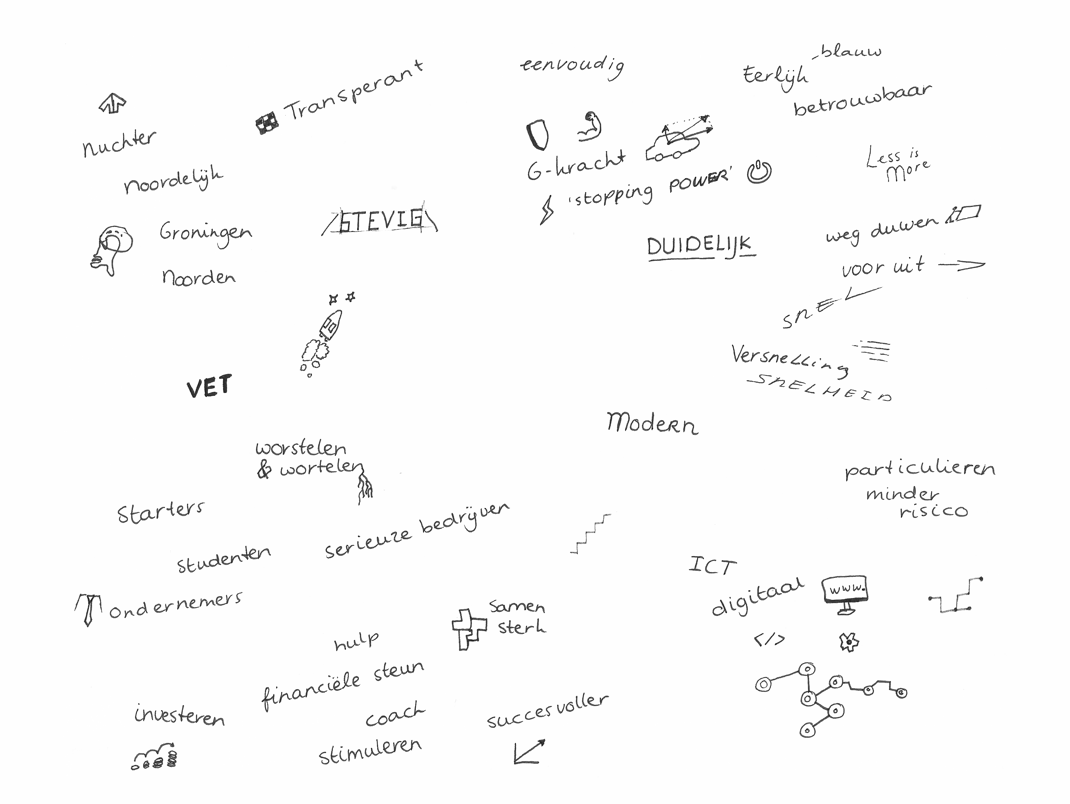 eenvoudig
Eerlijk
-blauw
betrouwbaar
Transperant
Nuchter
noordelijk
Groningen
Noorden
STEVIG
G-kracht
'stopping POWER'
Less is
More
DUIDELIJK
weg duwen
voor uit
SNEL
Versnelling
SNELHEID
VET
Modern
worstelen
& wortelen
Starters
studenten
ondernemers
serieuze bedrijven
particulieren
minder
risico
ICT
digitaal
www.
</>
Samen
sterk
hulp
financiële steun
investeren
coach
stimuleren
succesvoller